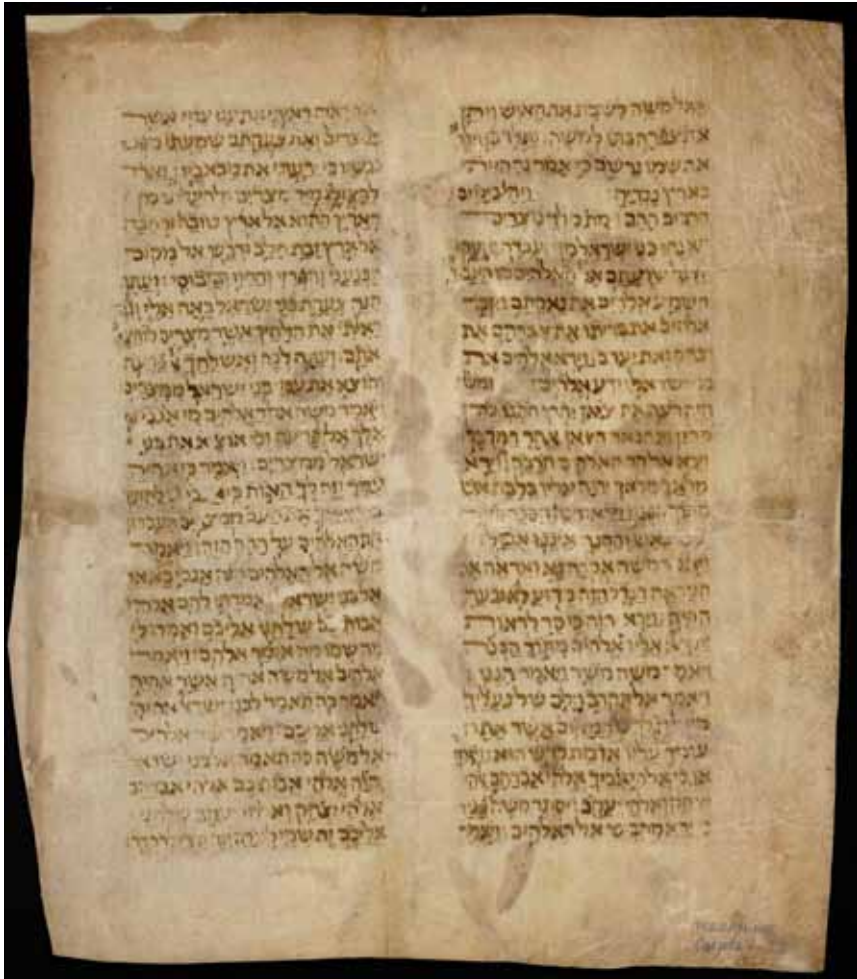 ויואל משה לשבת את האיש ויתן
את צפרה בתו למשה ותלד בן ויקרא
את שמו גרשם כי אמר גר הייתי
בארץ נכריה ויהי בימים
הרבים ההם וימת מלך מצרים
ויאנחו בני ישראל מן העבדה ויזעקו
ותעל שועתם אל האלהים מן העבדה
וישמע אלהים את נאקתם ויזכר
אלהים את בריתו את אברהם את
יצחק ואת יעקב וירא אלהים את
בני ישראל וידע אלהים ומשה
היה רעה את צאן יתרו חתנו כהן
מדין וינהג את הצאן אחר המדבר
ויבא אל הר האלהים חרבה וירא
מלאך יהוה אליו בלבת אש
מתוך הסנה וירא והנה הסנה
בער באש והסנה איננו אכל
ויאמר משה אסרה נא ואראה את
המראה הגדל הזה מדוע לא יבער
הסנה וירא יהוה כי סר לראות
ויקרא אליו אלהים מתוך הסנה
ויאמר משה משה ויאמר הנני
ויאמר אל תקרב הלם של נעליך
מעל רגליך כי המקום אשר אתה
עומד עליו אדמת קדש הוא ויאמר
אנכי אלהי אביך אלהי אברהם אלהי
יצחק ואלהי יעקב ויסתר משה פניו
כי ירא מהביט אל האלהים ויאמר
יהוה ראה ראיתי את עני עמי אשר
במצרים ואת צעקתם שמעתי מפני
נגשיו כי ידעתי את מכאביו וארד
להצילו מיד מצרים ולהעלתו מן
הארץ ההוא אל ארץ טובה ורחבה
אל ארץ זבת חלב ודבש אל מקום
הכנעני והפרזי והחוי והיבוסי ועתה
הנה צעקת בני ישראל באה אלי וגם
ראיתי את הלחץ אשר מצרים לחצים
אתם ועתה לכה ואשלחך אל פרעה
והוצא את עמי בני ישראל ממצרים
ויאמר משה אל האלהים מי אנכי כי
אלך אל פרעה וכי אוציא את בני
ישראל ממצרים ויאמר כי אהיה
עמך וזה לך האות כי אנכי שלחתיך
בהוציאך את העם ממצרים תעבדון
את האלהים על ההר הזה ויאמר
משה אל האלהים הנה אנכי בא אל
אל בני ישראל ואמרתי להם אלהי
אבותיכם שלחני אליכם ואמרו לי
מה שמו מה אומר אלהם ויאמר
אלהים אל משה אהיה אשר אהיה
ויאמר כה תאמר לבני ישראל אהיה
שלחני אליכם ויאמר עוד אלהים
אל משה כה תאמר אל בני ישראל
יהוה אלהי אבותיכם אלהי אברהם
אלהי יצחק ואלהי יעקב שלחני
אליכם זה שמי לעולם וזה זכרי לדר דר